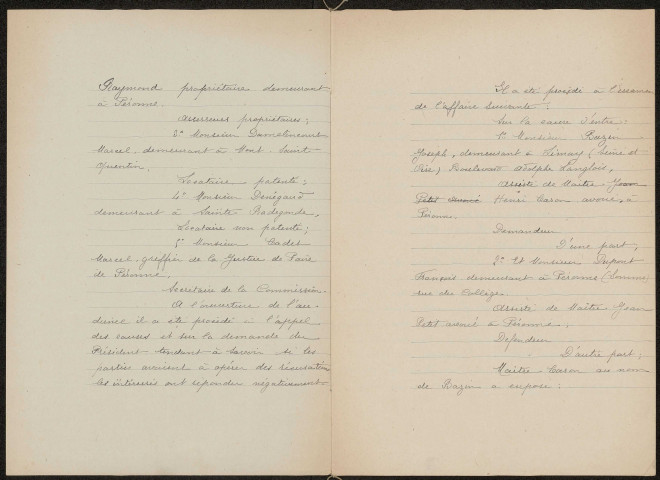 Raymond propriétaire demeurant
à Péronne.
Assesseurs propriétaires;
3° Monsieur Damelincourt
Marcel, demeurant à Mont-Saint-
Quentin,
Locataire patenté;
4° Monsieur Dénégard
demeurant à Sainte Radegonde,
Locataire non patenté;
5° Monsieur Cadet
Marcel, greffier de la Justice de Paix
de Péronne.
Secrétaire de la Commission.
A l'ouverture de l'au-
dience il a été procédé à l'appel
des causes et sur la demande du
Président tendant à savoir si les
parties avaient à opérer des récusations
les intéressés ont répondu négativement
Il a été procédé à l'examen
de l'affaire suivante:
Sur la cause d'entre:
1° Monsieur Bazin
Joseph, demeurant à Limay (Seine et
Oise) Boulevard Adolphe Langlois,
Assisté de Maître Jean
Petit avoué Henri Caron avoué, à
Péronne.
Demandeur
D'une part,
2° Et Monsieur Dupont
François demeurant à Péronne (Somme)
rue du Collège.
Assisté de Maître Jean
Petit avoué à Péronne.
Défendeur
D'autre part;
Maître Caron au nom
de Bazin a exposé: